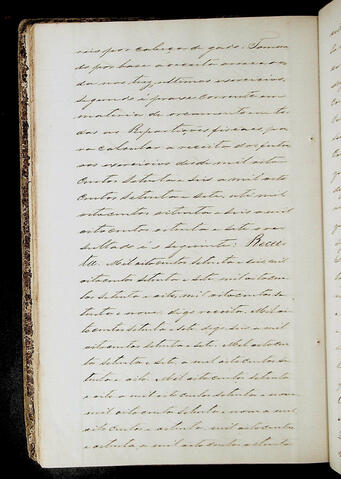 reis por cabeça de gado. Toman-
do por base a receita arrecada-
da nos tres ultimos exercicios,
segundo é praxe corrente em
materia de orçamento em to-
das as Repartições fiscaes, pa-
ra calcular a receita do futu-
ros exercicios desde mil oito
centos setenta e seis a mil oito
centos setenta e sete, até mil
oitocentos oitenta e seis a mil
oitocentos oitenta e sete o re-
sultado é o seguinte: Recei-
ta. Mil oitocentos setenta e seis mil
oitocentos setenta e sete mil oitocen-
tos setenta e oito, mil oitocentos se-
tenta e nove digo receita. Mil oi-
tocentos setenta e sete digo seis a mil
oitocentos setenta e sete. Mil oitocen-
tos setenta e sete a mil oitocentos se-
tenta e oito. Mil oitocentos setenta
e oito a mil oitocentos setenta e nove
mil oitocentos setenta e nove a mil
oitocentos e oitenta, mil oitocentos
e oitenta, a mil oitocentos e oitenta